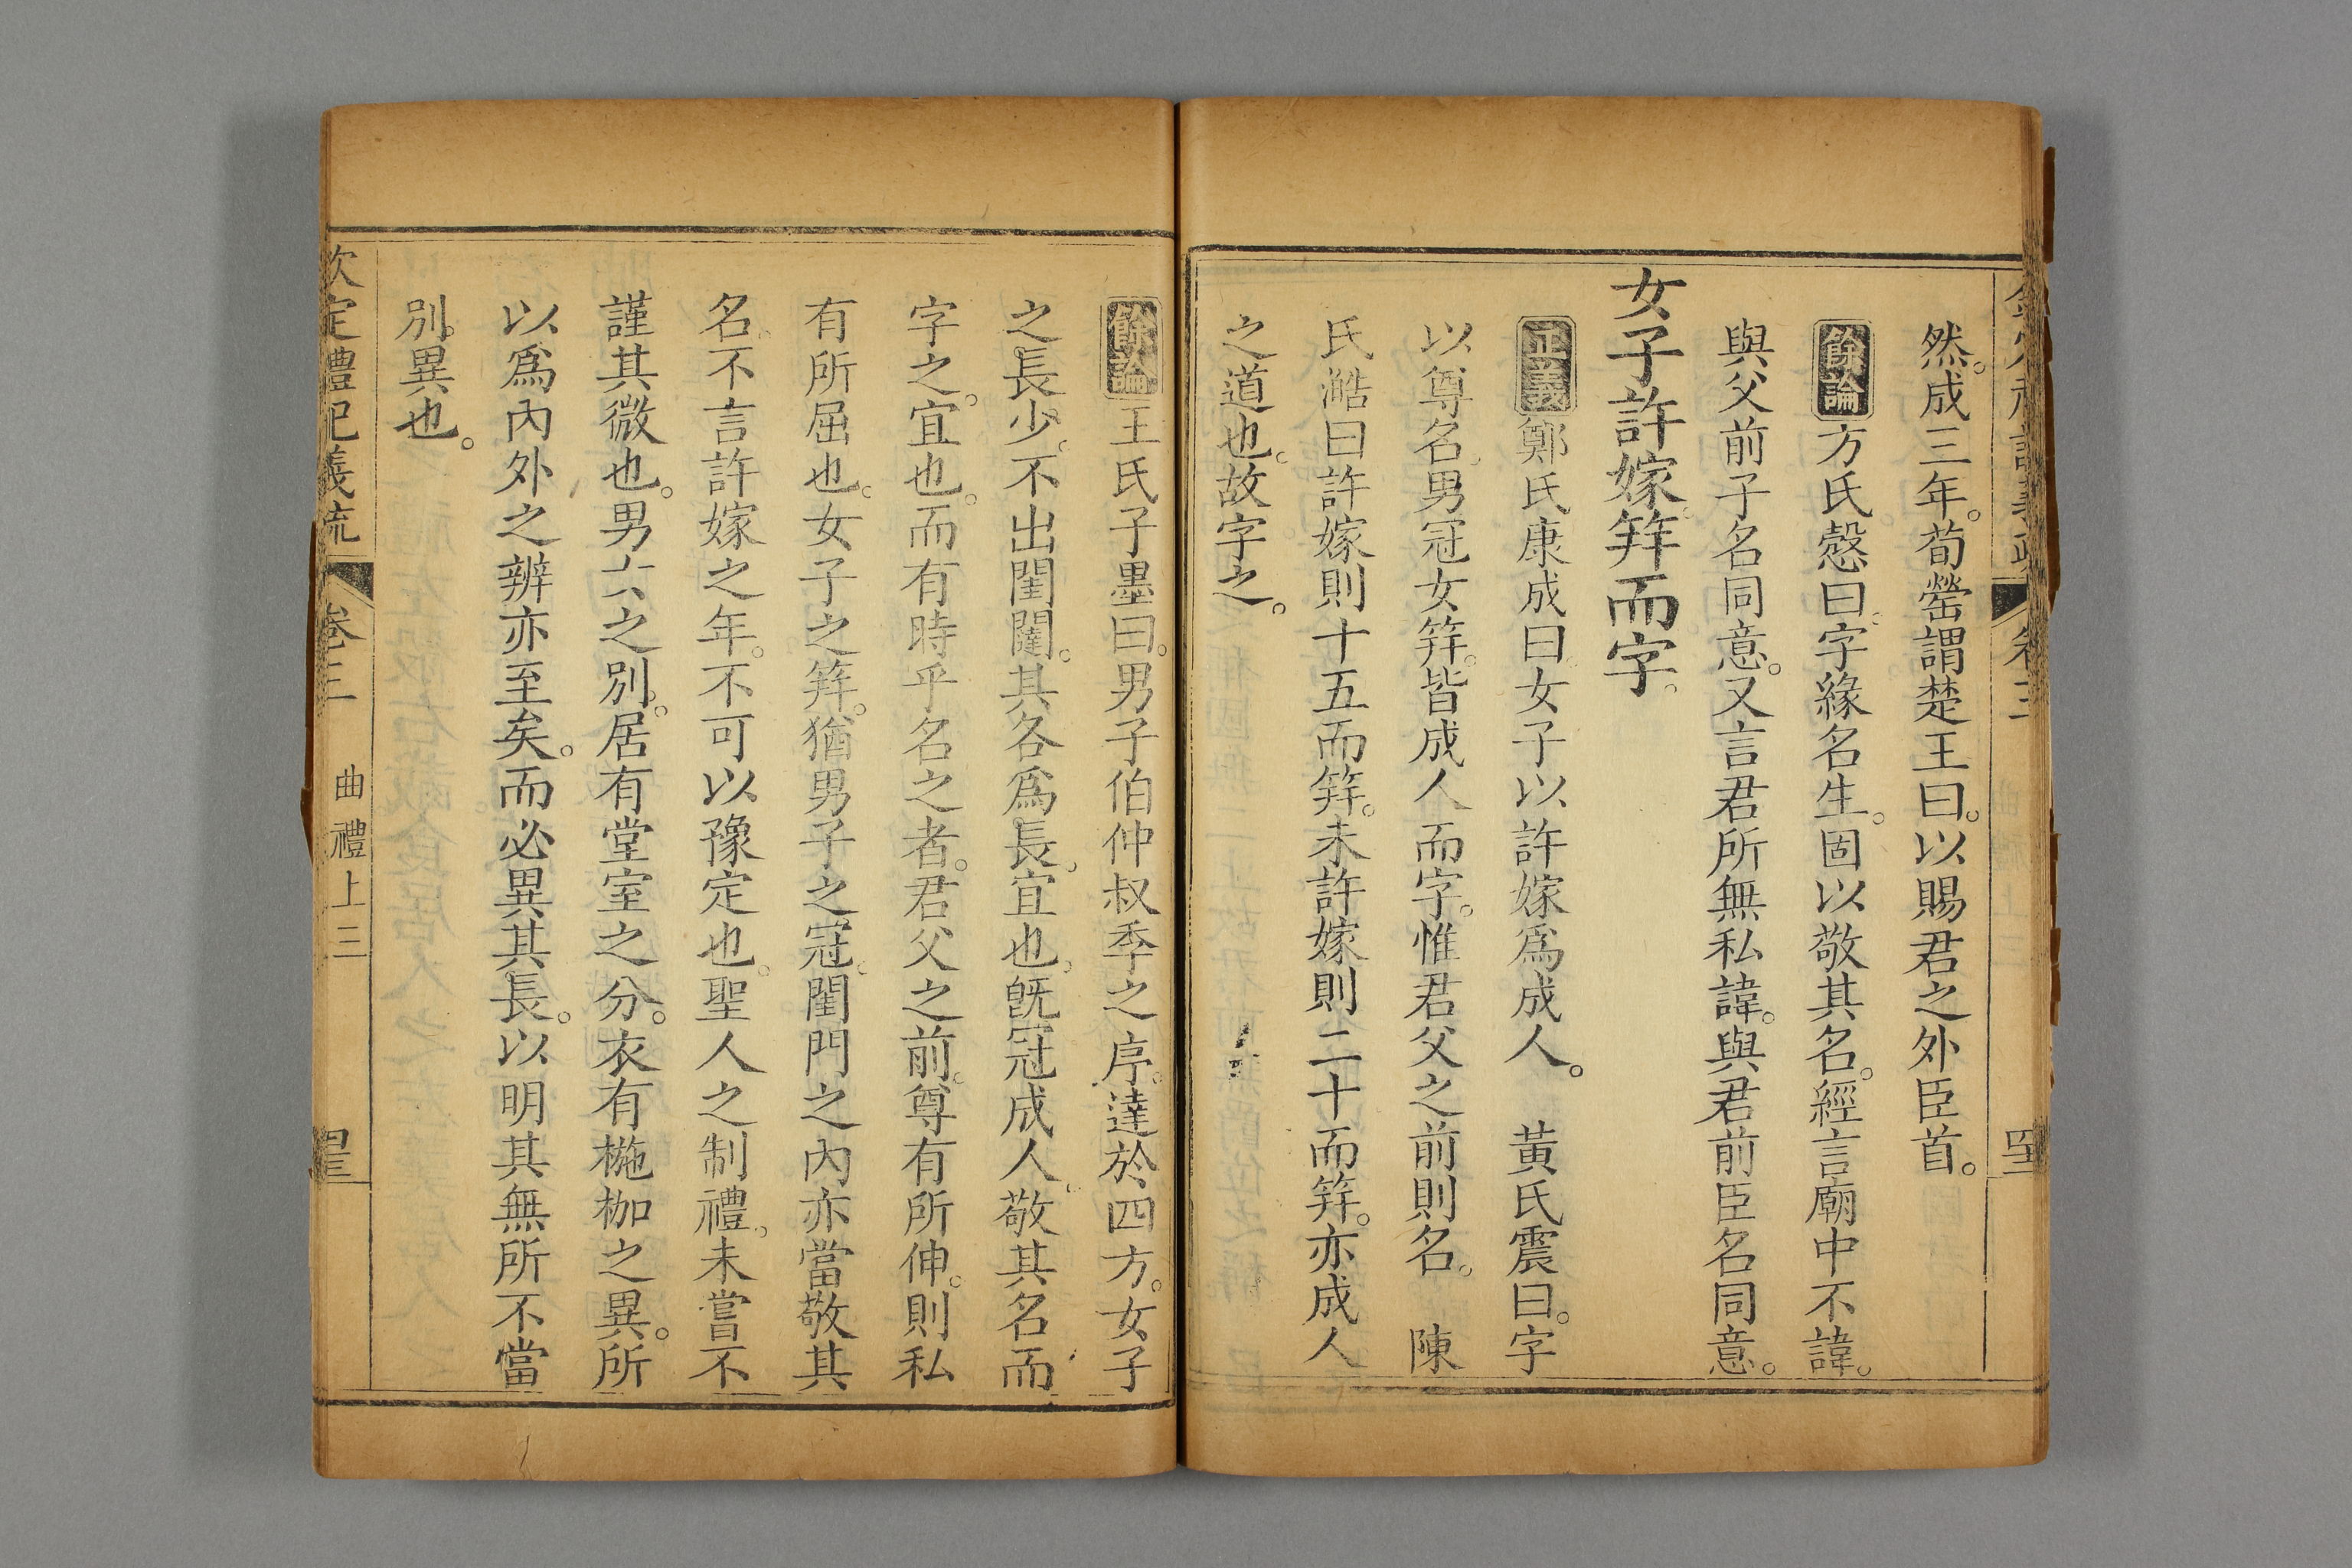 然。成三年。荀罃謂楚王曰。以賜君之外臣首。
餘論方氏慤曰。字緣名生。固以敬其名。經言廟中不諱。
與父前子名同意。又言君所無私諱。與君前臣名同意。
女子許嫁。筓而字。
正義鄭氏康成曰。女子以許嫁爲成人。 黃氏震曰。字
以尊名。男冠女筓。皆成人而字。惟君父之前則名。 陳
氏澔曰許嫁則十五而筓。未許嫁則二十而筓。亦成人
之道也。故字之。
餘論王氏子墨曰。男子伯仲叔季之序。達於四方。女子
之長少。不出閨闥。其各爲長。宜也。旣冠成人。敬其名而
字之。宜也。而有時乎名之者。君父之前。尊有所伸。則私
有所屈也。女子之筓。猶男子之冠。閨門之內亦當敬其
名。不言許嫁之年。不可以豫定也。聖人之制禮。未嘗不
謹其微也。男女之別。居有堂室之分。衣有椸枷之異。所
以爲內外之辨亦至矣。而必異其長。以明其無所不當
別異也。
欽定禮記義疏 卷三 曲禮上三